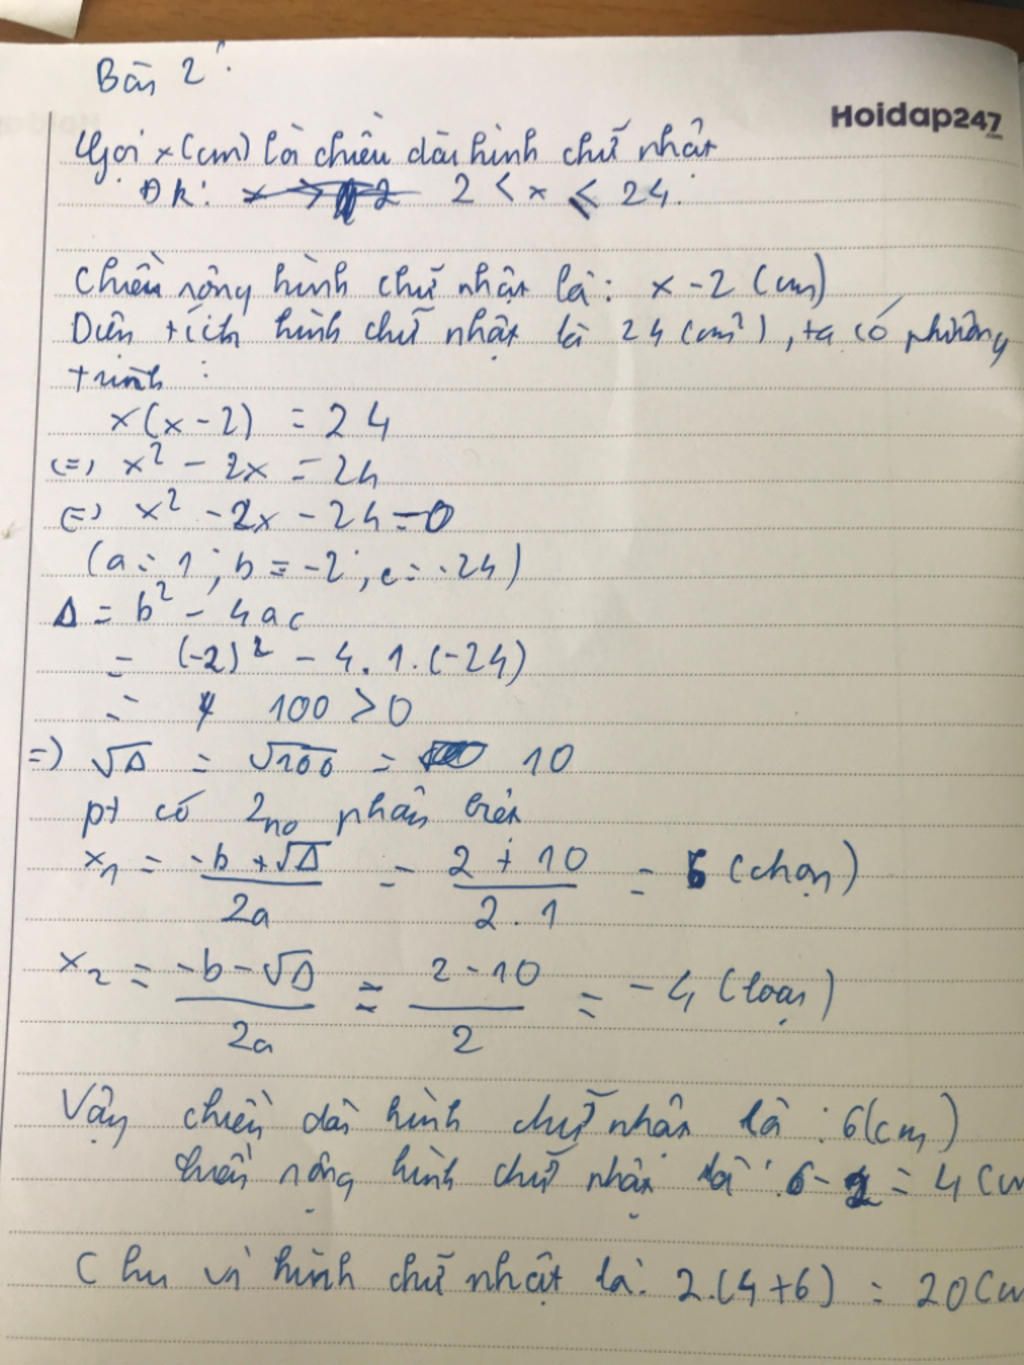 Bài 2:
Hoidap247
Gọi x (cm) là chiều dài hình chữ nhật
ĐK: 2 < x ≤ 24.
Chiều rộng hình chữ nhật là: x - 2 (cm)
Diện tích hình chữ nhật là 24 (cm²), ta có phương
trình:
x(x - 2) = 24
(=) x² - 2x = 24
(=) x² - 2x - 24 = 0
(a = 1; b = -2; c = -24)
Δ = b² - 4ac
= (-2)² - 4.1.(-24)
= 100 > 0
=) √Δ = √100 = 10
pt có 2 no phân biệt
x₁ = (-b + √Δ)/(2a) = (2 + 10)/(2.1) = 6 (chọn)
x₂ = (-b - √Δ)/(2a) = (2 - 10)/2 = -4 (loại)
Vậy chiều dài hình chữ nhật là: 6(cm)
chiều rộng hình chữ nhật là: 6 - 2 = 4 (cm
Chu vi hình chữ nhật là: 2.(4+6) = 20 (cm